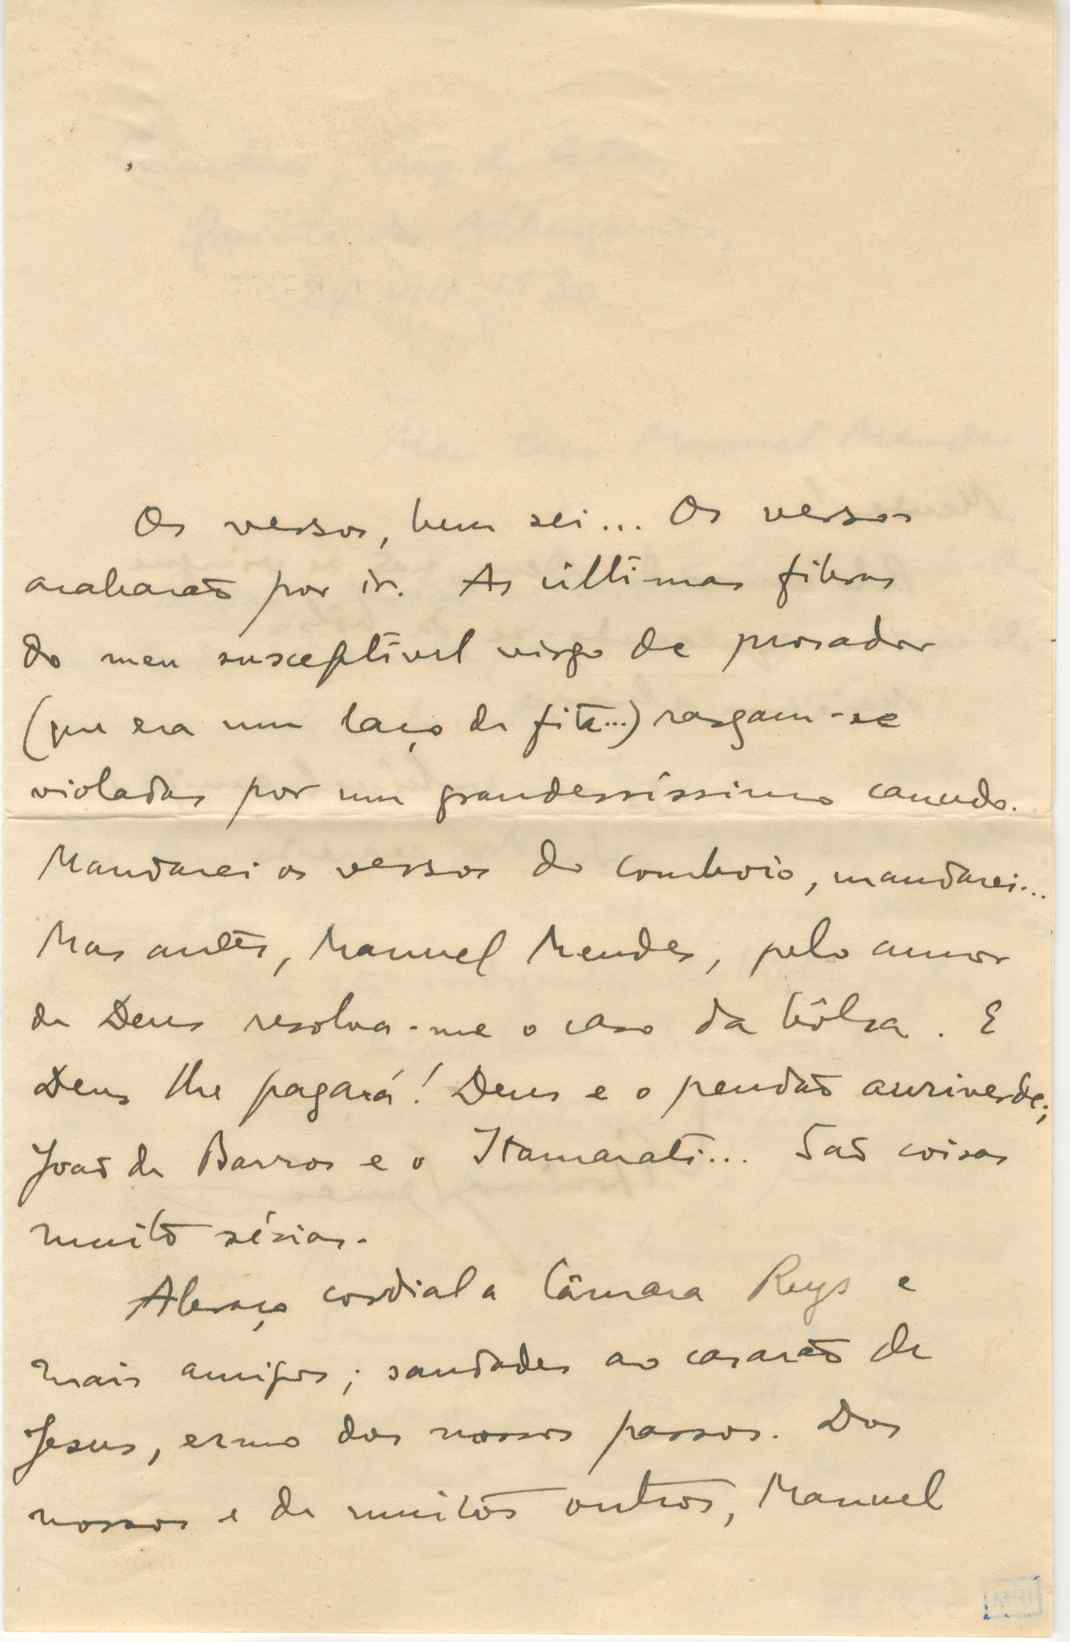 Os versos, bem sei... Os versos
acabarão por ir. As últimas fibras
do meu susceptível virgo de prosador
(que era um laço de fita...) rasgam-se
violadas por um grandessíssimo canudo.
Mandarei os versos do comboio, mandarei...
Mas antes, Manuel Mendes, pelo amor
de Deus resolva-me o caso da bôlsa. E
Deus lhe pagará! Deus e o pendão auriverde;
João de Barros e o Itamarati... São coisas
muito sérias.
Abraço cordial a Câmara Reys e
mais amigos; saudades ao casarão de
Jesus, ermo dos nossos passos. Dos
nossos e de muitos outros, Manuel